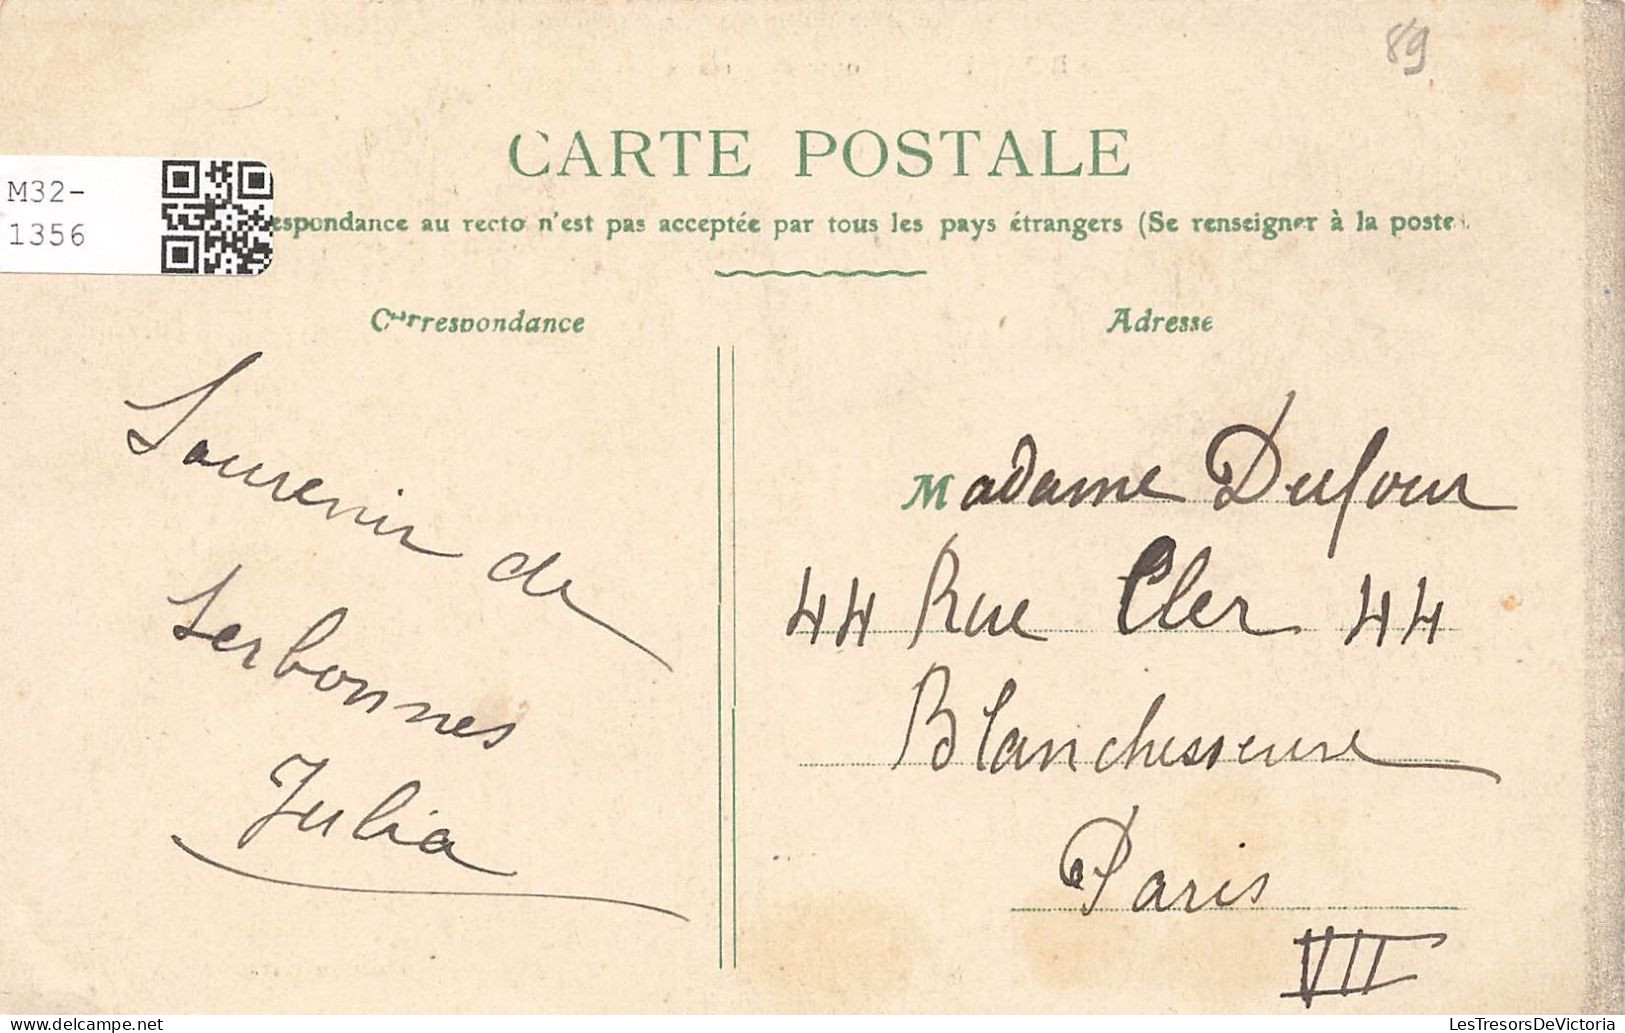 89
CARTE POSTALE
M32-
1356
espondance au recto n'est pas acceptée par tous les pays étrangers (Se renseigner à la poste).
Correspondance
Adresse
Souvenir de
Serbonnes
Julia
Madame Dufour
44 Rue Cler 44
Blanchisseuse
Paris
VII
LesTresorsDeVictoria